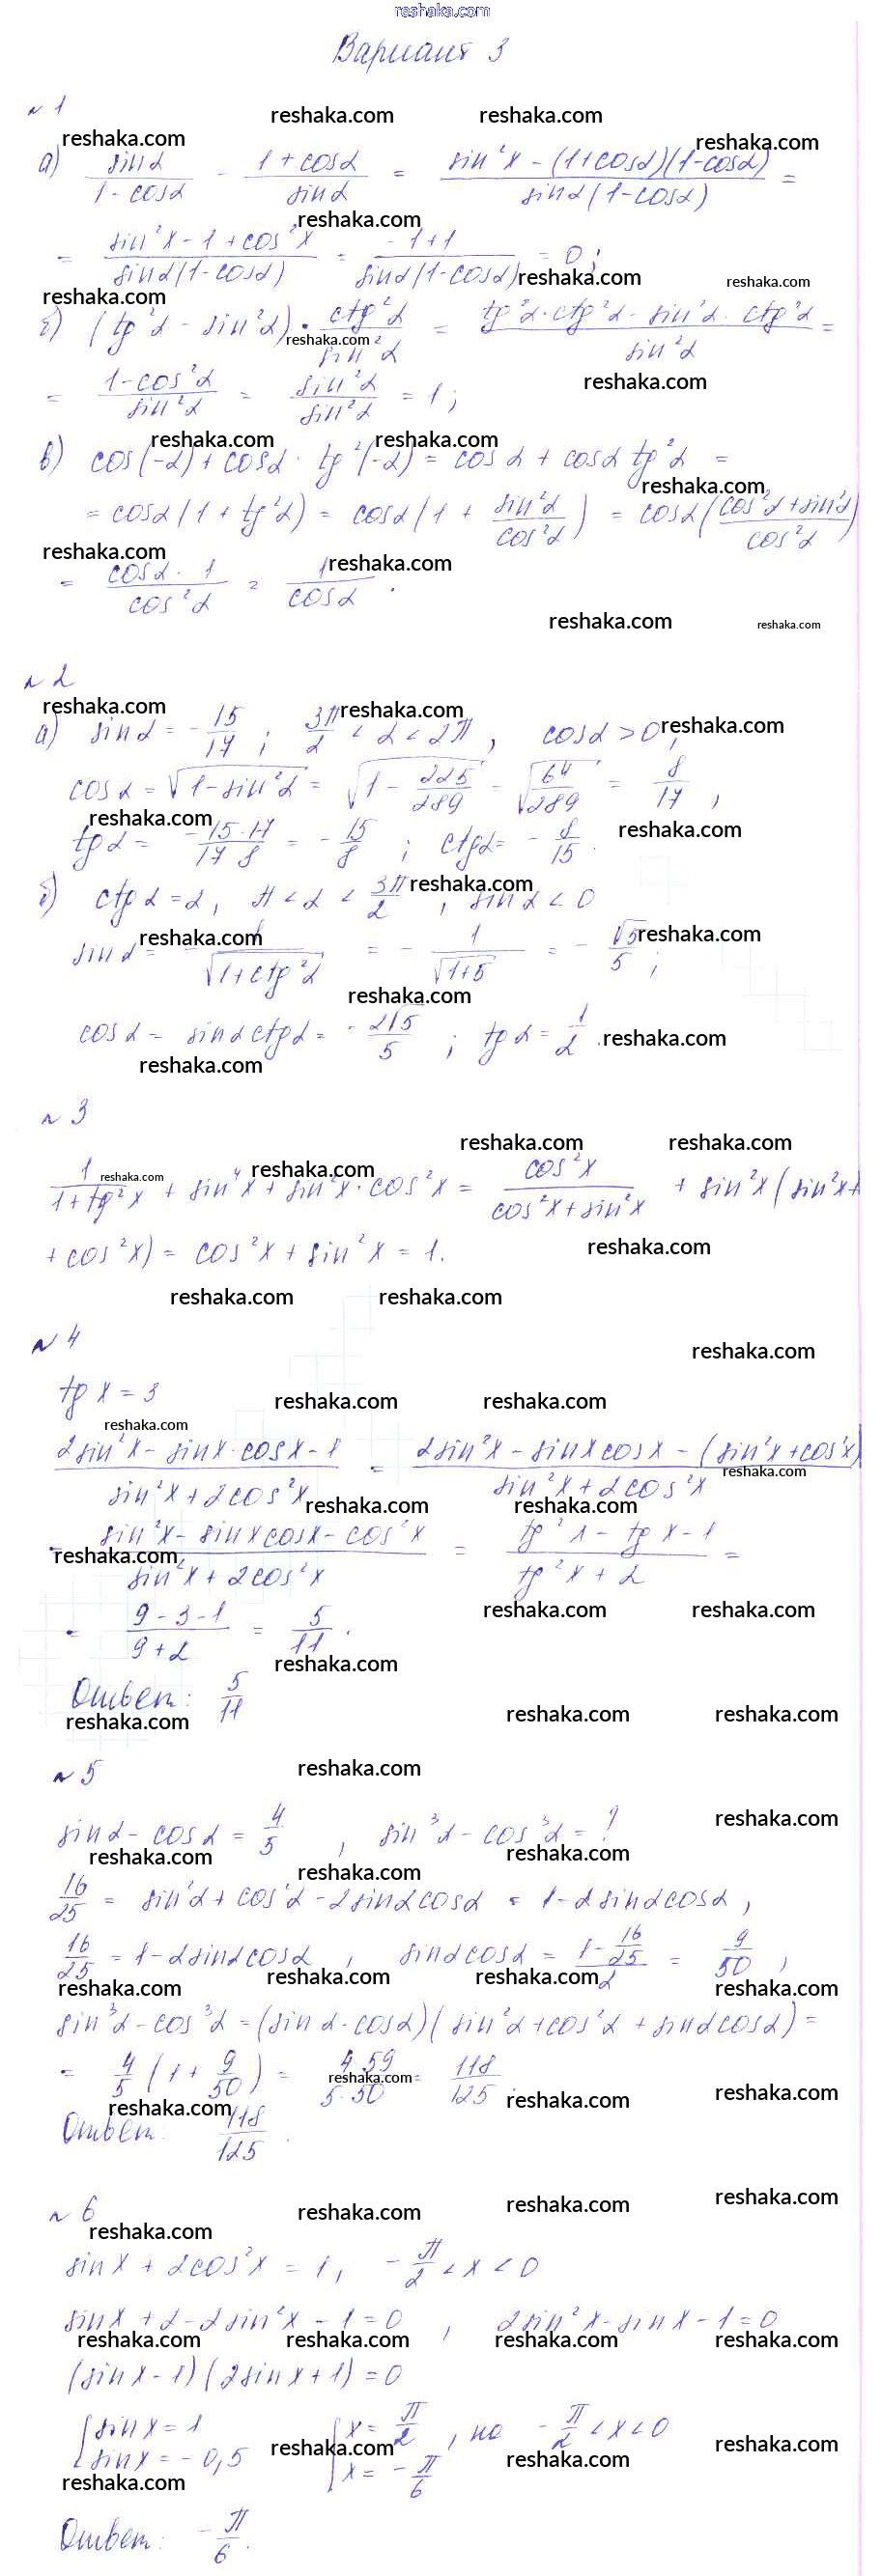 reshaka.com
Вариант 3
№ 1
а) sinα/(1 - cosα) - (1 + cosα)/sinα = (sin²x - (1+cosα)(1-cosα))/(sinα(1-cosα)) =
= (sin²x - 1 + cos²x)/(sinα(1-cosα)) = (-1+1)/(sinα(1-cosα)) = 0;
б) (tg²α - sin²α) · ctg²α/sin²α = (tg²α · ctg²α - sin²α · ctg²α)/sin²α =
= (1-cos²α)/sin²α = sin²α/sin²α = 1;
в) cos(-α) + cosα · tg²(-α) = cosα + cosα tg²α =
= cosα(1 + tg²α) = cosα(1 + sin²α/cos²α) = cosα((cos²α + sin²α)/cos²α)
= (cosα · 1)/cos²α = 1/cosα.
№ 2
а) sinα = -15/17; 3π/2 < α < 2π, cosα > 0,
cosα = √(1-sin²α) = √(1 - 225/289) = √(64/289) = 8/17,
tgα = -(15·17)/(17·8) = -15/8; ctgα = -8/15.
б) ctgα = 2, π < α < 3π/2, sinα < 0
sinα = -1/√(1+ctg²α) = -1/√(1+5) = -√5/5;
cosα = sinα ctgα = -2√5/5; tgα = 1/2.
№ 3
1/(1+tg²x) + sin⁴x + sin²x · cos²x = cos²x/(cos²x + sin²x) + sin²x(sin²x +
+ cos²x) = cos²x + sin²x = 1.
№ 4
tg x = 3
(2sin²x - sinx · cosx - 1)/(sin²x + 2cos²x) = (2sin²x - sinx cosx - (sin²x + cos²x))/(sin²x + 2cos²x)
= (sin²x - sinx cosx - cos²x)/(sin²x + 2cos²x) = (tg²x - tg x - 1)/(tg²x + 2) =
= (9 - 3 - 1)/(9 + 2) = 5/11.
Ответ: 5/11
№ 5
sinα - cosα = 4/5, sin³α - cos³α = ?
16/25 = sin²α + cos²α - 2sinαcosα = 1 - 2sinαcosα,
16/25 = 1 - 2sinαcosα, sinαcosα = (1 - 16/25)/2 = 9/50,
sin³α - cos³α = (sinα - cosα)(sin²α + cos²α + sinαcosα) =
= 4/5 (1 + 9/50) = (4·59)/(5·50) = 118/125.
Ответ: 118/125.
№ 6
sinx + 2cos²x = 1, -π/2 < x < 0
sinx + 2 - 2sin²x - 1 = 0, 2sin²x - sinx - 1 = 0
(sinx - 1)(2sinx + 1) = 0
[sinx = 1 [x = π/2, но -π/2 < x < 0
[sinx = -0,5 [x = -π/6
Ответ: -π/6.